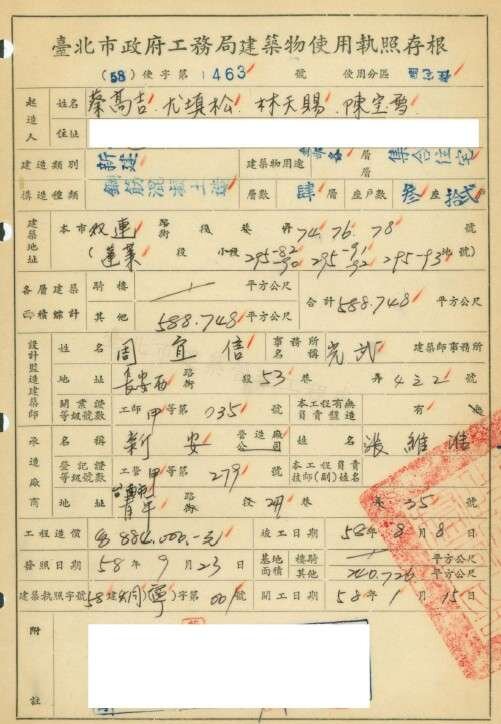 臺北市政府工務局建築物使用執照存根
(58)使字第1463號 使用分區 住宅區
起造人 姓名 蔡高吉 尤填松 林天賜
住址
建造類別 新建 建築物用途 層 層 集合住宅
構造種類 鋼筋混凝土造 層數 肆層 座戶數 叁座 拾貳
建築地址 本市 路街 段 巷 弄 74. 76. 78 號
(蓬萊段 小段 295-82 295-91 295-93 地號)
90 92
各層建築面積總計 騎樓 平方公尺 合計 588.748 平方公尺
其他 588.748 平方公尺
設計監造建築師 姓名 周宜信 事務所名稱 建築師事務所
地址 長安西路街 段 53 巷 弄 4之2 號
開業證等級號數 工師甲等第035號 本工程有無負責監造 有
承造廠商 名稱 新安 營造廠公司 姓名 張維
登記證等級號數 工營甲等第279號 本工程負責技師(副)姓名
地址 路街 段 巷 35 號
工程造價 884,000.-元 竣工日期 58年8月8日
發照日期 58年9月23日 基地面積 騎樓 平方公尺
其他 240.726 平方公尺
建築執照字號 58建(寧)字第001號 開工日期 58年1月15日
附註